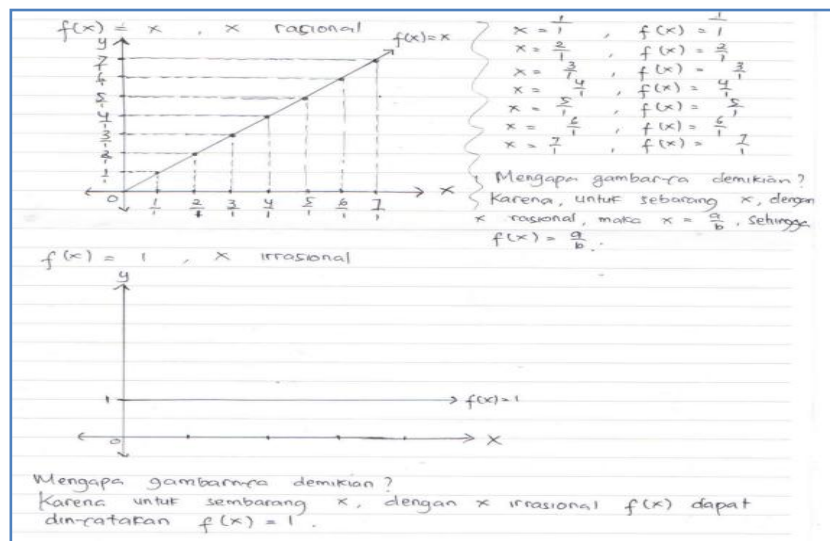 f(x) = x , x rasional
y
7/1
6/1
5/1
4/1
3/1
2/1
1/1
0
1/1 2/1 3/1 4/1 5/1 6/1 7/1
x
f(x)=x
x = 1/1 , f(x) = 1/1
x = 2/1 , f(x) = 2/1
x = 3/1 , f(x) = 3/1
x = 4/1 , f(x) = 4/1
x = 5/1 , f(x) = 5/1
x = 6/1 , f(x) = 6/1
x = 7/1 , f(x) = 7/1
Mengapa gambarnya demikian?
Karena, untuk sebarang x, dengan
x rasional, maka x = a/b, sehingga
f(x) = a/b.
f(x) = 1 , x irrasional
y
1
f(x)=1
0
x
Mengapa gambarnya demikian?
Karena untuk sembarang x, dengan x irrasional f(x) dapat
dinyatakan f(x) = 1.